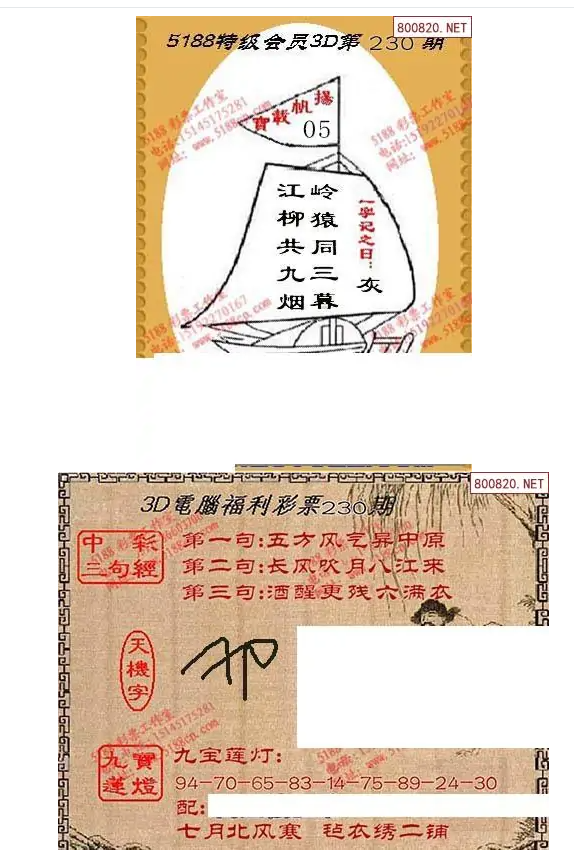 800820.NET
5188特级会员3D第230期
揚帆載寶
05
岭猿同三暮
江柳共九烟
一字记之曰：灰
5188 彩票工作室
电话:15145175281
网址: www.5188cp.com
5188 彩票工作室
电话:15192270167
网址: www.5188cp.com
800820.NET
3D電腦福利彩票230期
中彩三句經
第一句:五方风气异中原
第二句:长风吹月八江来
第三句:酒醒更残六满衣
天機字
九寶蓮燈
九宝莲灯:
94-70-65-83-14-75-89-24-30
配:
七月北风寒 毡衣绣二铺